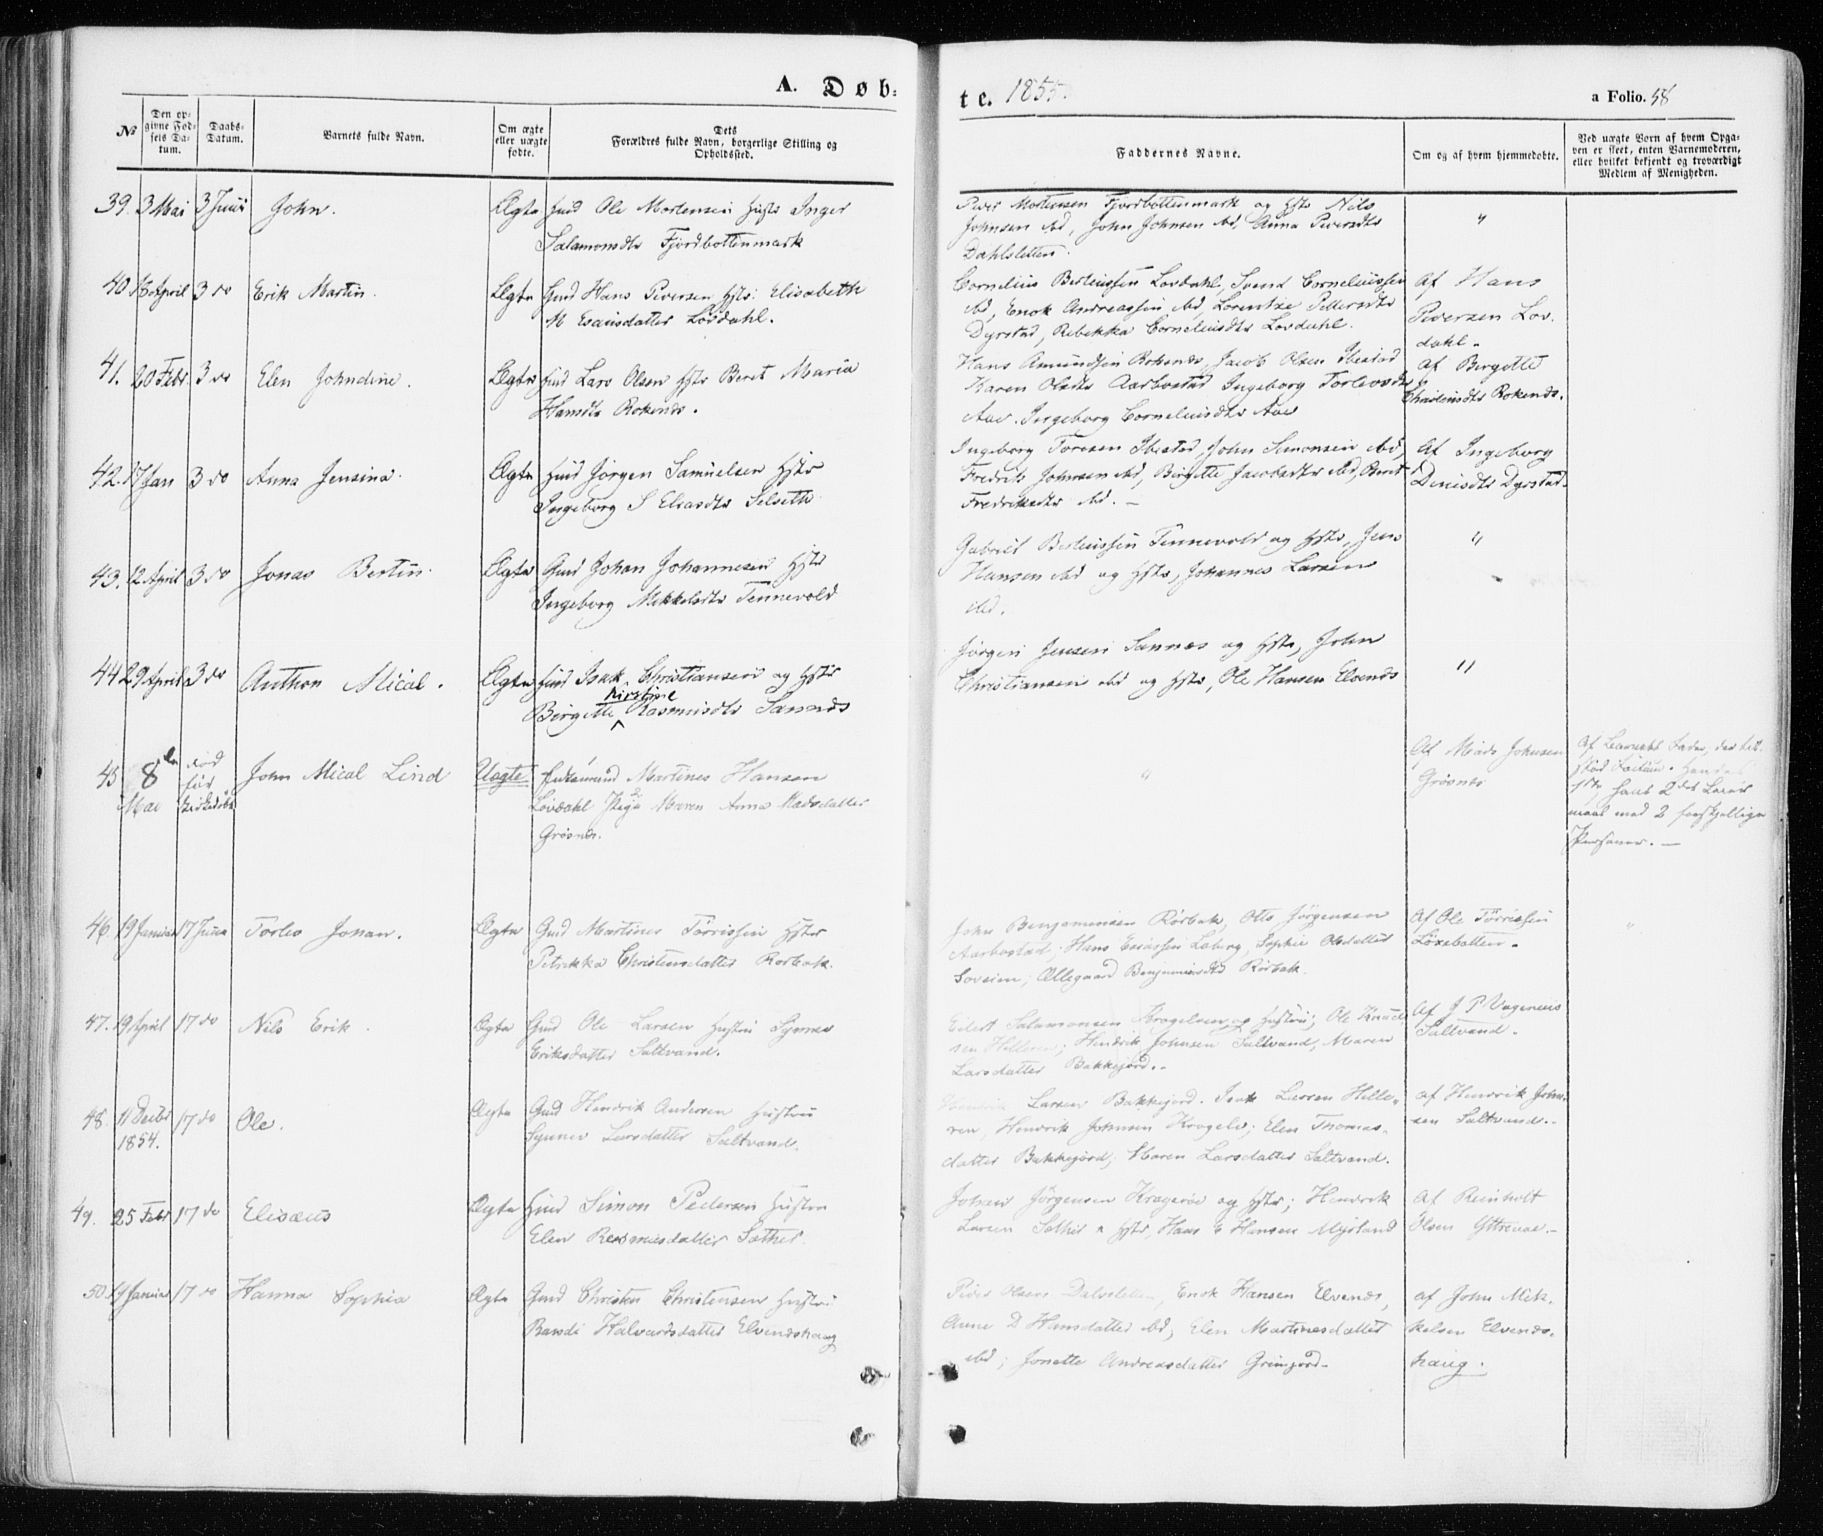 A. Døb-
te. 1855.
a Folio. 58
№
Den op-
givne Fød-
sels Da-
tum.
Daabs-
Datum.
Barnets fulde Navn.
Om ægte
eller uægte
fødte.
Dets
Forældres fulde Navn, borgerlige Stilling og
Opholdssted.
Faddernes Navne.
Om og af hvem hjemmedøbte.
Ved uægte Børn af hvem Opga-
ven er skeet, enten Barnemoderen,
eller hvilket bekjendt og troværdigt
Medlem af Menigheden.
39. 3 Mai 3 Juni John. Ægte Gmd Ole Mortensen Hstr Inger
Salamonsdtr Fjordbottenmark
Peder Mortensen Fjordbottenmark og Hstr Nils
Johnsen ibd, John Johnsen ibd, Anna Pedersdtr
Dahlsletten.
"
40. 13 April 3 do Erik Martin. Ægte Gmd Hans Pedersen Hstr: Elisabeth
M Esaiasdatter Lovdahl.
Cornelius Bertheussen Lovdahl, Svend Corneliussen
ibd, Enok Andreassen ibd, Lorentze Pettersdtr
Dyrstad, Rebekka Corneliusdtr Lovdahl.
Af Hans
Pedersen Lov.
dahl.
41. 20 Febr. 3 do Elen Johndine. Ægte Gmd Lars Olsen Hstr Beret Maria
Hansdtr Rokenes.
Hans Amundsen Rokenes, Jacob Olsen Ibestad
Karen Olsdtr Aarbostad Ingeborg Torlevsdtr
Aae. Ingeborg Corneliusdtr Aae
af Bergitte
Rokenes.
42. 17 Jan 3 do Anna Jensina. Ægte Gmd Jørgen Samuelsen Hstr
Ingeborg S Eliasdtr Selseth
Ingeborg Toresen Ibestad, John Simonsen ibd,
Fredrik Johnsen ibd, Birgitte Jacobsdtr ibd, Beret
Fredriksdtr ibd. —
Af Ingeborg
Denisdtr Dyrstad.
43. 12 April 3 do Jonas Bertin. Ægte Gmd Johan Johannesen Hstr
Ingeborg Mikkelsdtr Tennevold
Gabriel Bertheussen Tennevold og Hstr, Jens
Hansen ibd og Hstr, Johannes Larsen
ibd.
"
44 29 April 3 do Anthon Mical. Ægte Gmd Isak Christiansen og Hstr
Kirstine
Birgitte Rasmusdtr Sannes
Jørgen Jensen Sannes og Hstr, John
Christiansen ibd og Hstr, Ole Hansen Elvenes
"
45 8de død John Mical Lind Uægte Martines Hansen
Mai før
Lovdahl Pige Maren Anna Madsdatter
Grøsnes.
"
Af Mads Johnsen
Grøsnes
Af Barnets Fader, der til-
stod Factum.
2det Leier-
maal med 2 forskjellige
Personer. —
46. 19 Januar 17 Juni Torlev Johan. Ægte Gmd Martines Tørrissen Hstr
Petrikka Christensdatter Rørbak.
John Benjaminsen Rørbak, Otto Jørgensen
Aarbostad; Hans Esaiassen Laberg, Sophie Olsdatter
Soveien; Ellegaard Benjaminsdtr Rørbak.
Af Ole Tørrissen
Løxebotten.
"
47. 19 April 17 do Nils Erik. Ægte Gmd Ole Larsen Hustru Synnøv
Eriksdatter Saltvand.
Edert Salamonsen Krogelven og Hustru; Ole Knud-
sen Hilleren; Hendrik Johnsen Saltvand, Maren
Larsdatter Bakkejord.
Af J P Vagenius
Saltvand.
48. 11 Decbr 17 do Ole. Ægte Gmd Hendrik Andersen Hustru
1854.
Synnev Larsdatter Saltvand.
Larsen Bakkejord. Isak Larsen Hille-
ren, Hendrik Johnsen Krogelv; Elen Thomas-
datter Bakkejord; Maren Larsdatter Saltvand.
af Hendrik John-
sen Saltvand.
49. 25 Febr 17 do Elisæus Ægte Gmd Simon Pedersen Hustru
Elen Rasmusdatter Sæther.
Johan Jørgensen Kragerøe og Hstr; Hendrik
Larsen Sæther & Hstr, Hans E Hansen Myrland
Af Reinholt
Olsen Yttreaae.
50. 19 Januar 17 do Hanna Sophia Ægte Gmd Christen Christensen Hustru
Randi Halvardsdatter Elveneshaug
Peder Olsen Dalsletten, Enok Hansen Elvenes,
Anne D Hansdatter ibd; Elen Martinesdatter
ibd; Jonette Andreasdatter Grønjord.
af John Mik-
kelsen Elvenes-
haug.